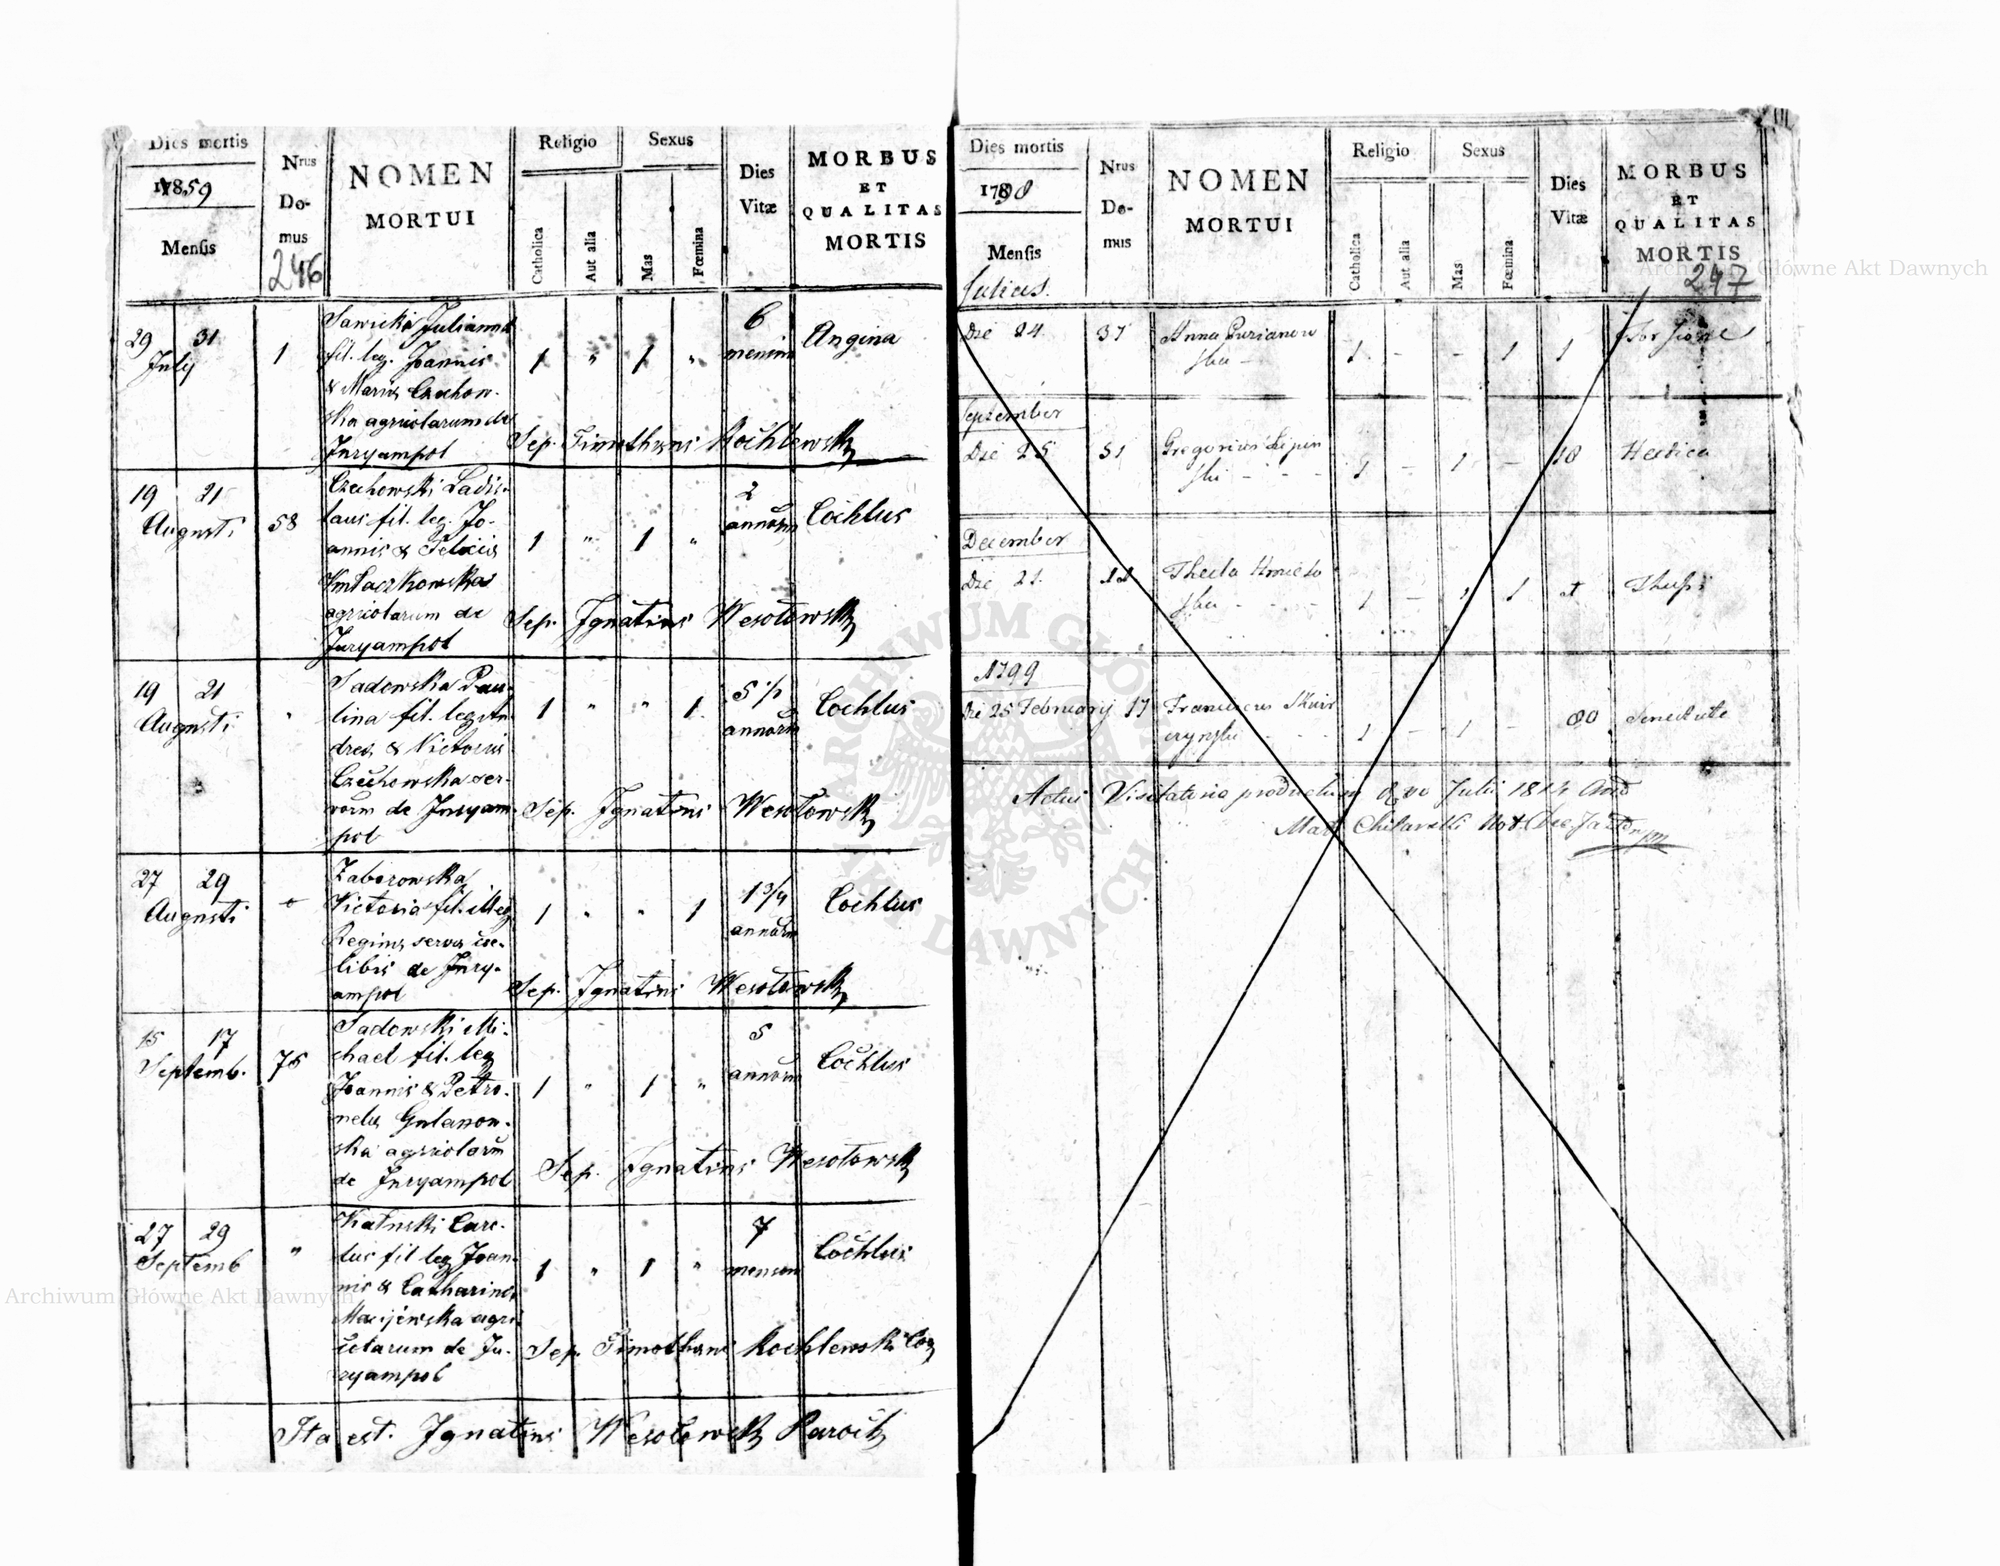 Dies mortis
1859
Mensis
Nrus
Do-
mus
246
NOMEN
MORTUI
Religio
Catholica
Aut alia
Sexus
Mas
Fœmina
Dies
Vitæ
MORBUS
ET
QUALITAS
MORTIS
29 31
July
1
Sawicki Julianna
fil. leg. Joannis
& Maria Czechow-
ska agricolarum de
Juryampol
1 " 1 "
6
mensium
Angina
Sep. Timotheus Kochlewski
19 21
Augusti
58
Czechowski Ladis-
laus fil. leg. Jo-
annis & Felicis
agricolarum de
Juryampol
1 " 1 "
2
annorum
Cochlus
Sep. Ignatius Wesołowski
19 21
Augusti
"
Sadowska Pau-
lina fil. leg. An-
drea & Victoria
Czechowska ser-
vorum de Juryam-
pol
1 " " 1
5 1/2
annorum
Cochlus
Sep. Ignatius Wesołowski
27 29
Augusti
Zaborowska
Victoria fil. illeg
Regina serva cæ-
libis de Jury-
ampol
1 " " 1
1 3/4
annorum
Cochlus
Sep. Ignatius Wesołowski
15 17
Septemb.
75
Sadowski Mi-
chael fil. leg
Joannis & Petro-
nela Gulanow-
ska agricolarum
de Juryampol
1 " 1 "
5
annorum
Cochlus
Sep. Ignatius Wesołowski
27 29
Septemb
"
Karo-
lus fil leg Joan-
nis & Catharina
Macijewska agri
colarum de Ju-
ryampol
1 " 1 "
7
mensium
Cochlus
Sep. Timotheus Kochlewski
Ita est. Ignatius Wesołowski Paroch
Dies mortis
1798
Mensis
Julius.
Nrus
Do-
mus
NOMEN
MORTUI
Religio
Catholica
Aut alia
Sexus
Mas
Fœmina
Dies
Vitæ
MORBUS
ET
QUALITAS
MORTIS
247
Die 24
37
Anna Gurianow
ska -
1 - - 1
1
September
Die 25
51
Gregorius Lipin
ski - - -
1 - 1 -
18
Hectica
December
Die 21.
Thecla
ska - - -
1 - 1 1
Thussi
1799
Die 25 February
17
Franciscus Skur
czynski - - -
1 - 1 -
80
Senectute
Actus Visitatorio productum Julii 1814
Archiwum Główne Akt Dawnych
Archiwum Główne Akt Dawnych
ARCHIWUM GŁÓWNE
AKT DAWNYCH